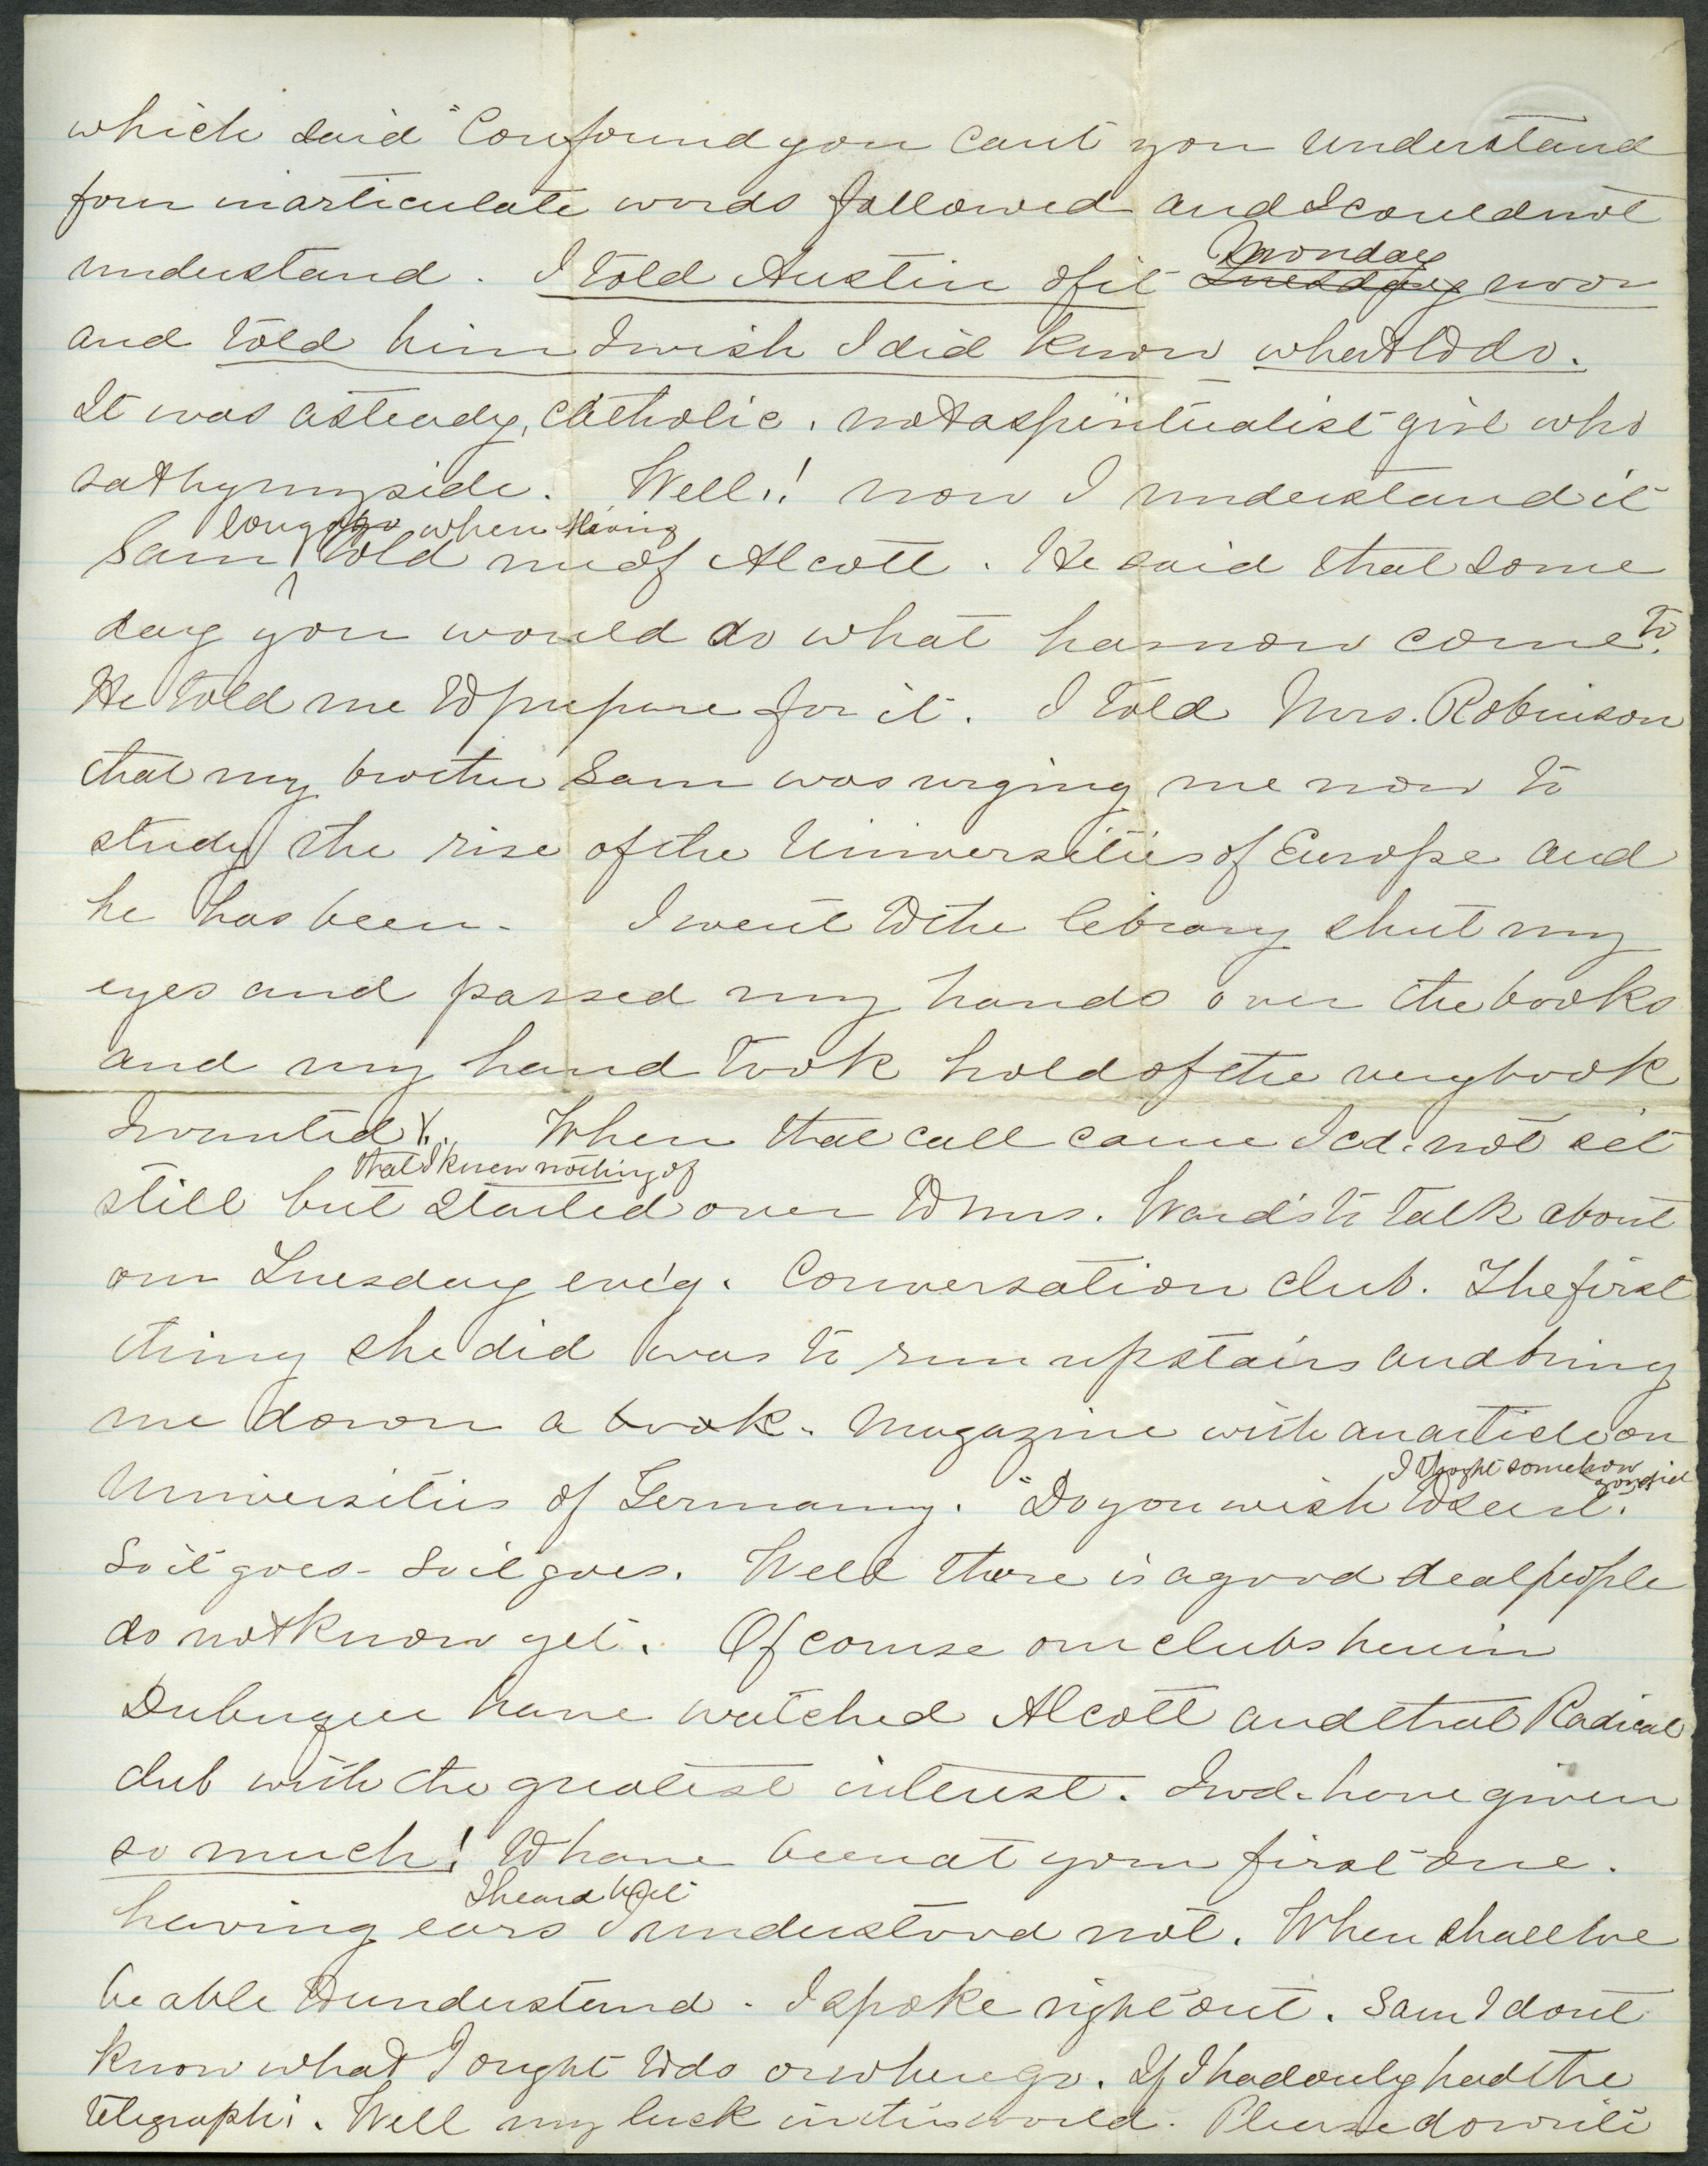 which said "Confound you cant you understand
four inarticulate words followed and I could not
Monday
understand. I told Austin of it Tuesday noon
and told him I wish I did know what to do.
It was a steady, Catholic, not a spiritualist girl who
sat by my side. Well!! now I understand it
long ago when living
Sam told me of Alcott. He said that some
day you would do what has now come to.
He told me to prepare for it. I told Mrs. Robinson
that my brother Sam was urging me now to
study the rise of the Universities of Europe and
he has been - I went to the library shut my
eyes and passed my hands over the books
and my hand took hold of the very book
I wanted X. When that call came I cd. not sit
that I knew nothing of
still but started over to Mrs. Ward's to talk about
our Tuesday eve'g. Conversation Club. The first
thing she did was to run up stairs and bring
me down a book - Magazine with an article on
I thought somehow you did
Universities of Germany. "Do you wish to see it.
So it goes - So it goes. Well there is a good deal people
do not know yet. Of course our clubs here in
Dubuque have watched Alcott and that Radical
club with the greatest interest. I wd. have given
so much! to have been at your first one.
I heard but
having ears I understood not. When shall we
be able to understand - I spoke right out. Sam I dont
know what I ought to do or where go. If I had only had the
telegraph. Well my luck in this world. Please do write